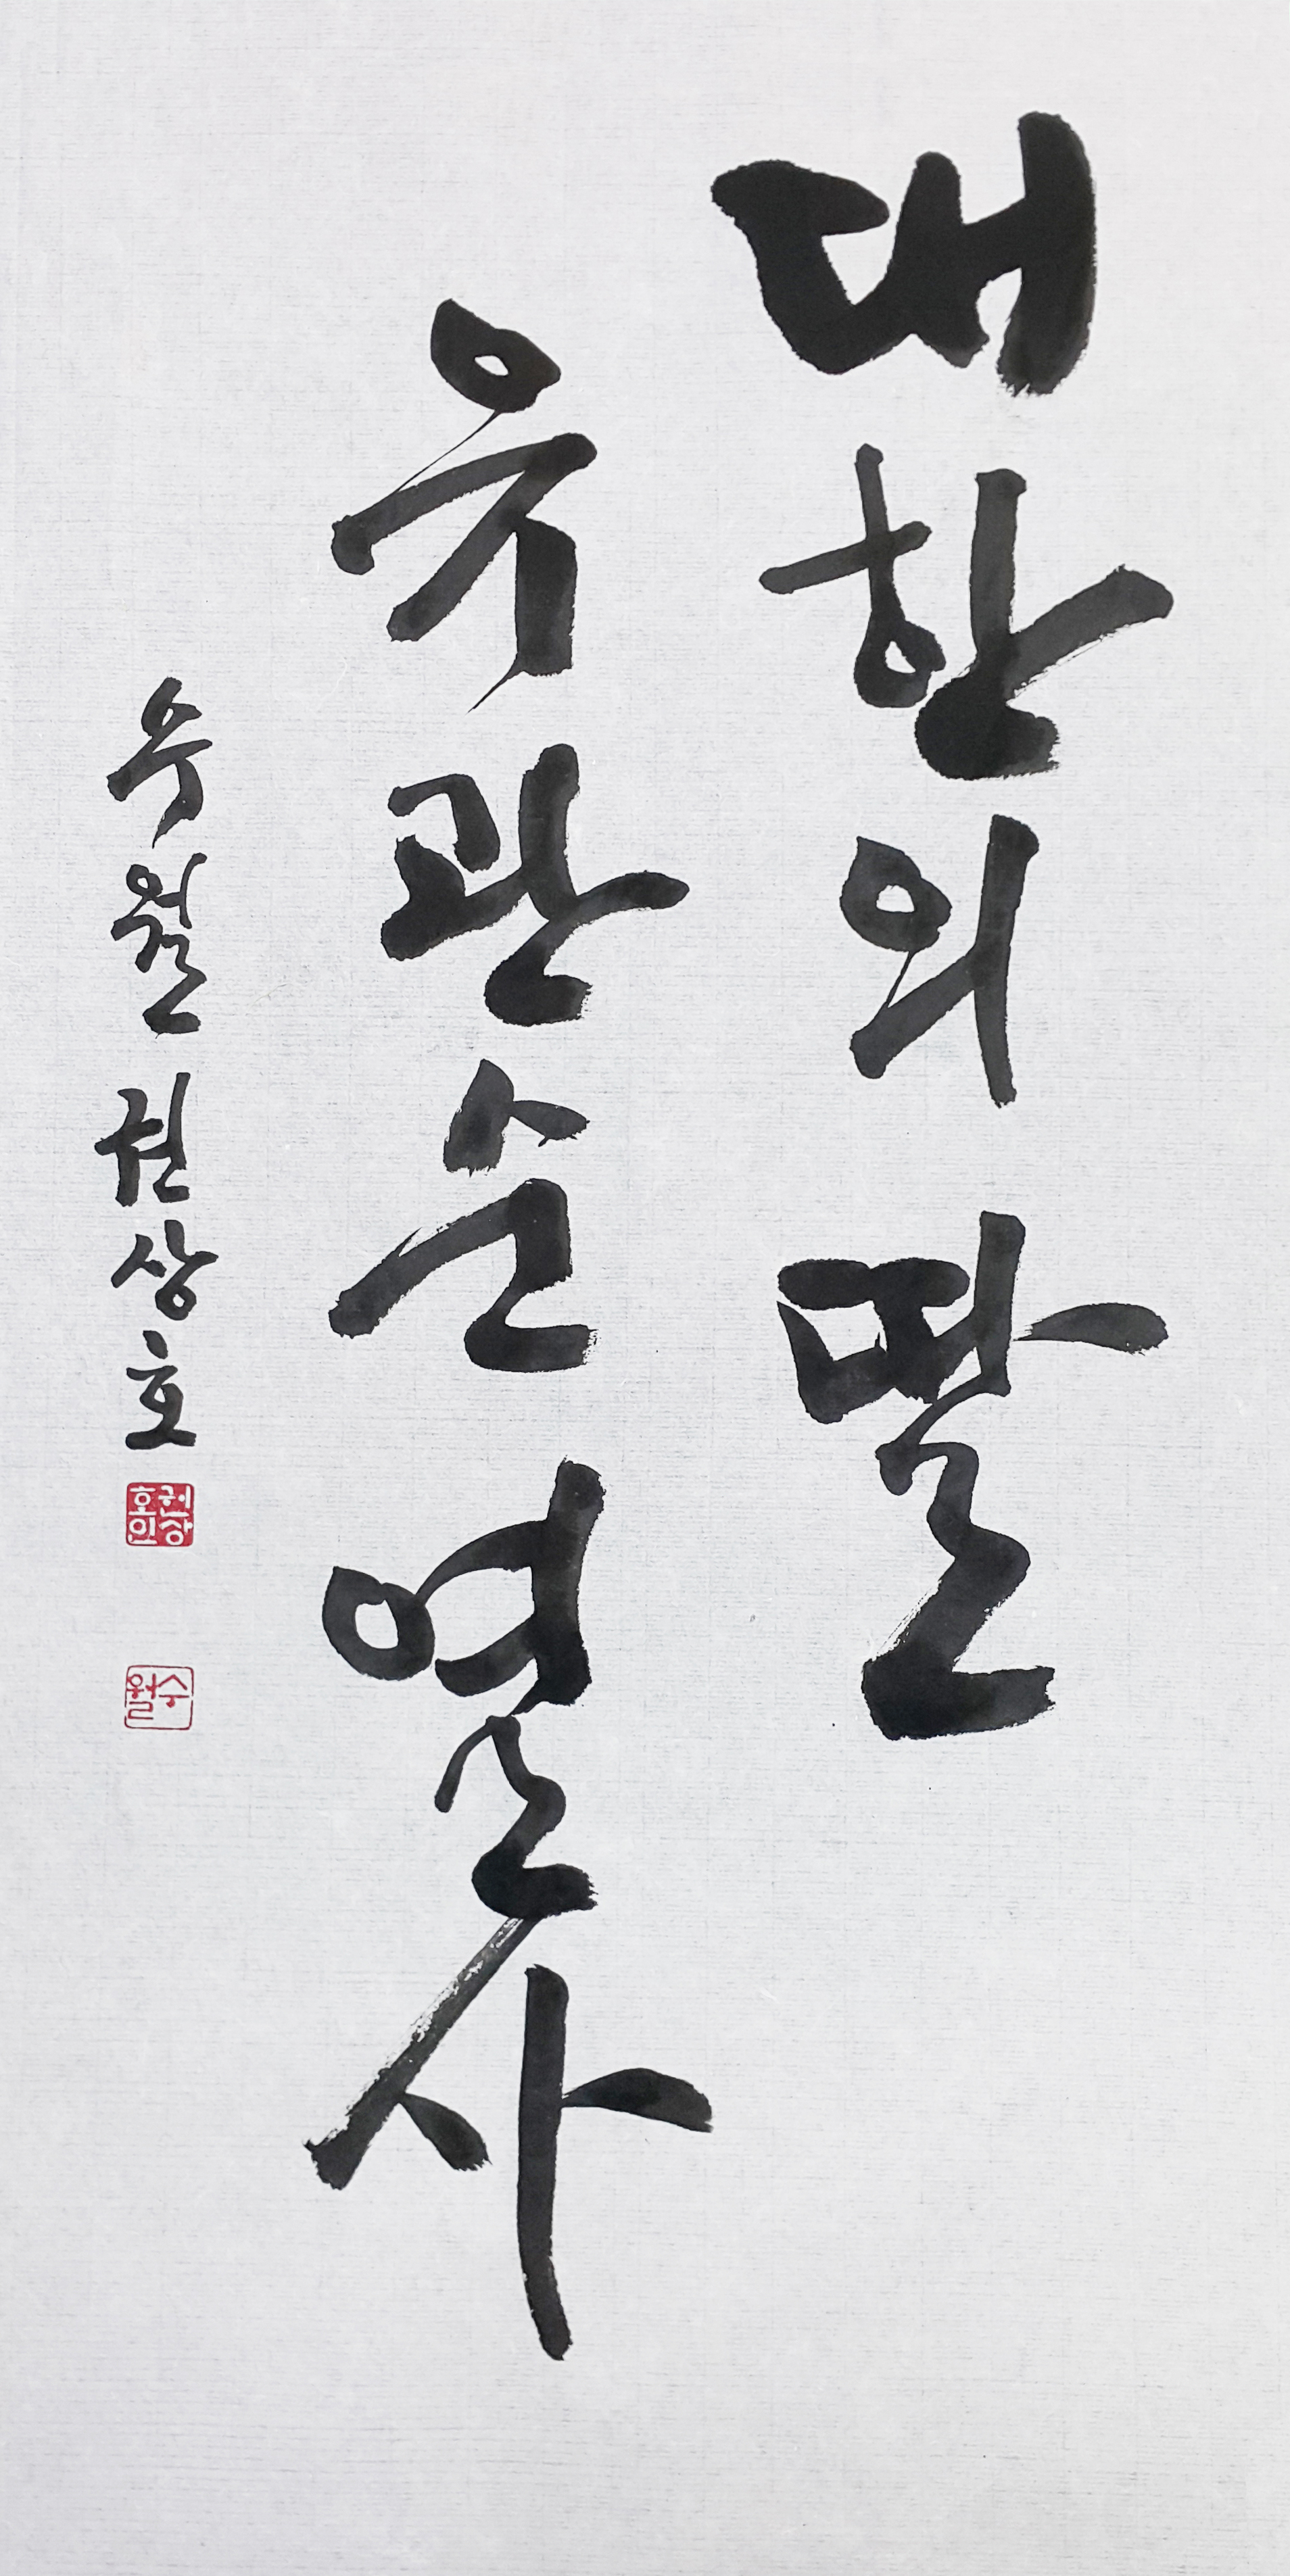 대한의 딸
유관순 열사
수월 권상호
권상호인
수월